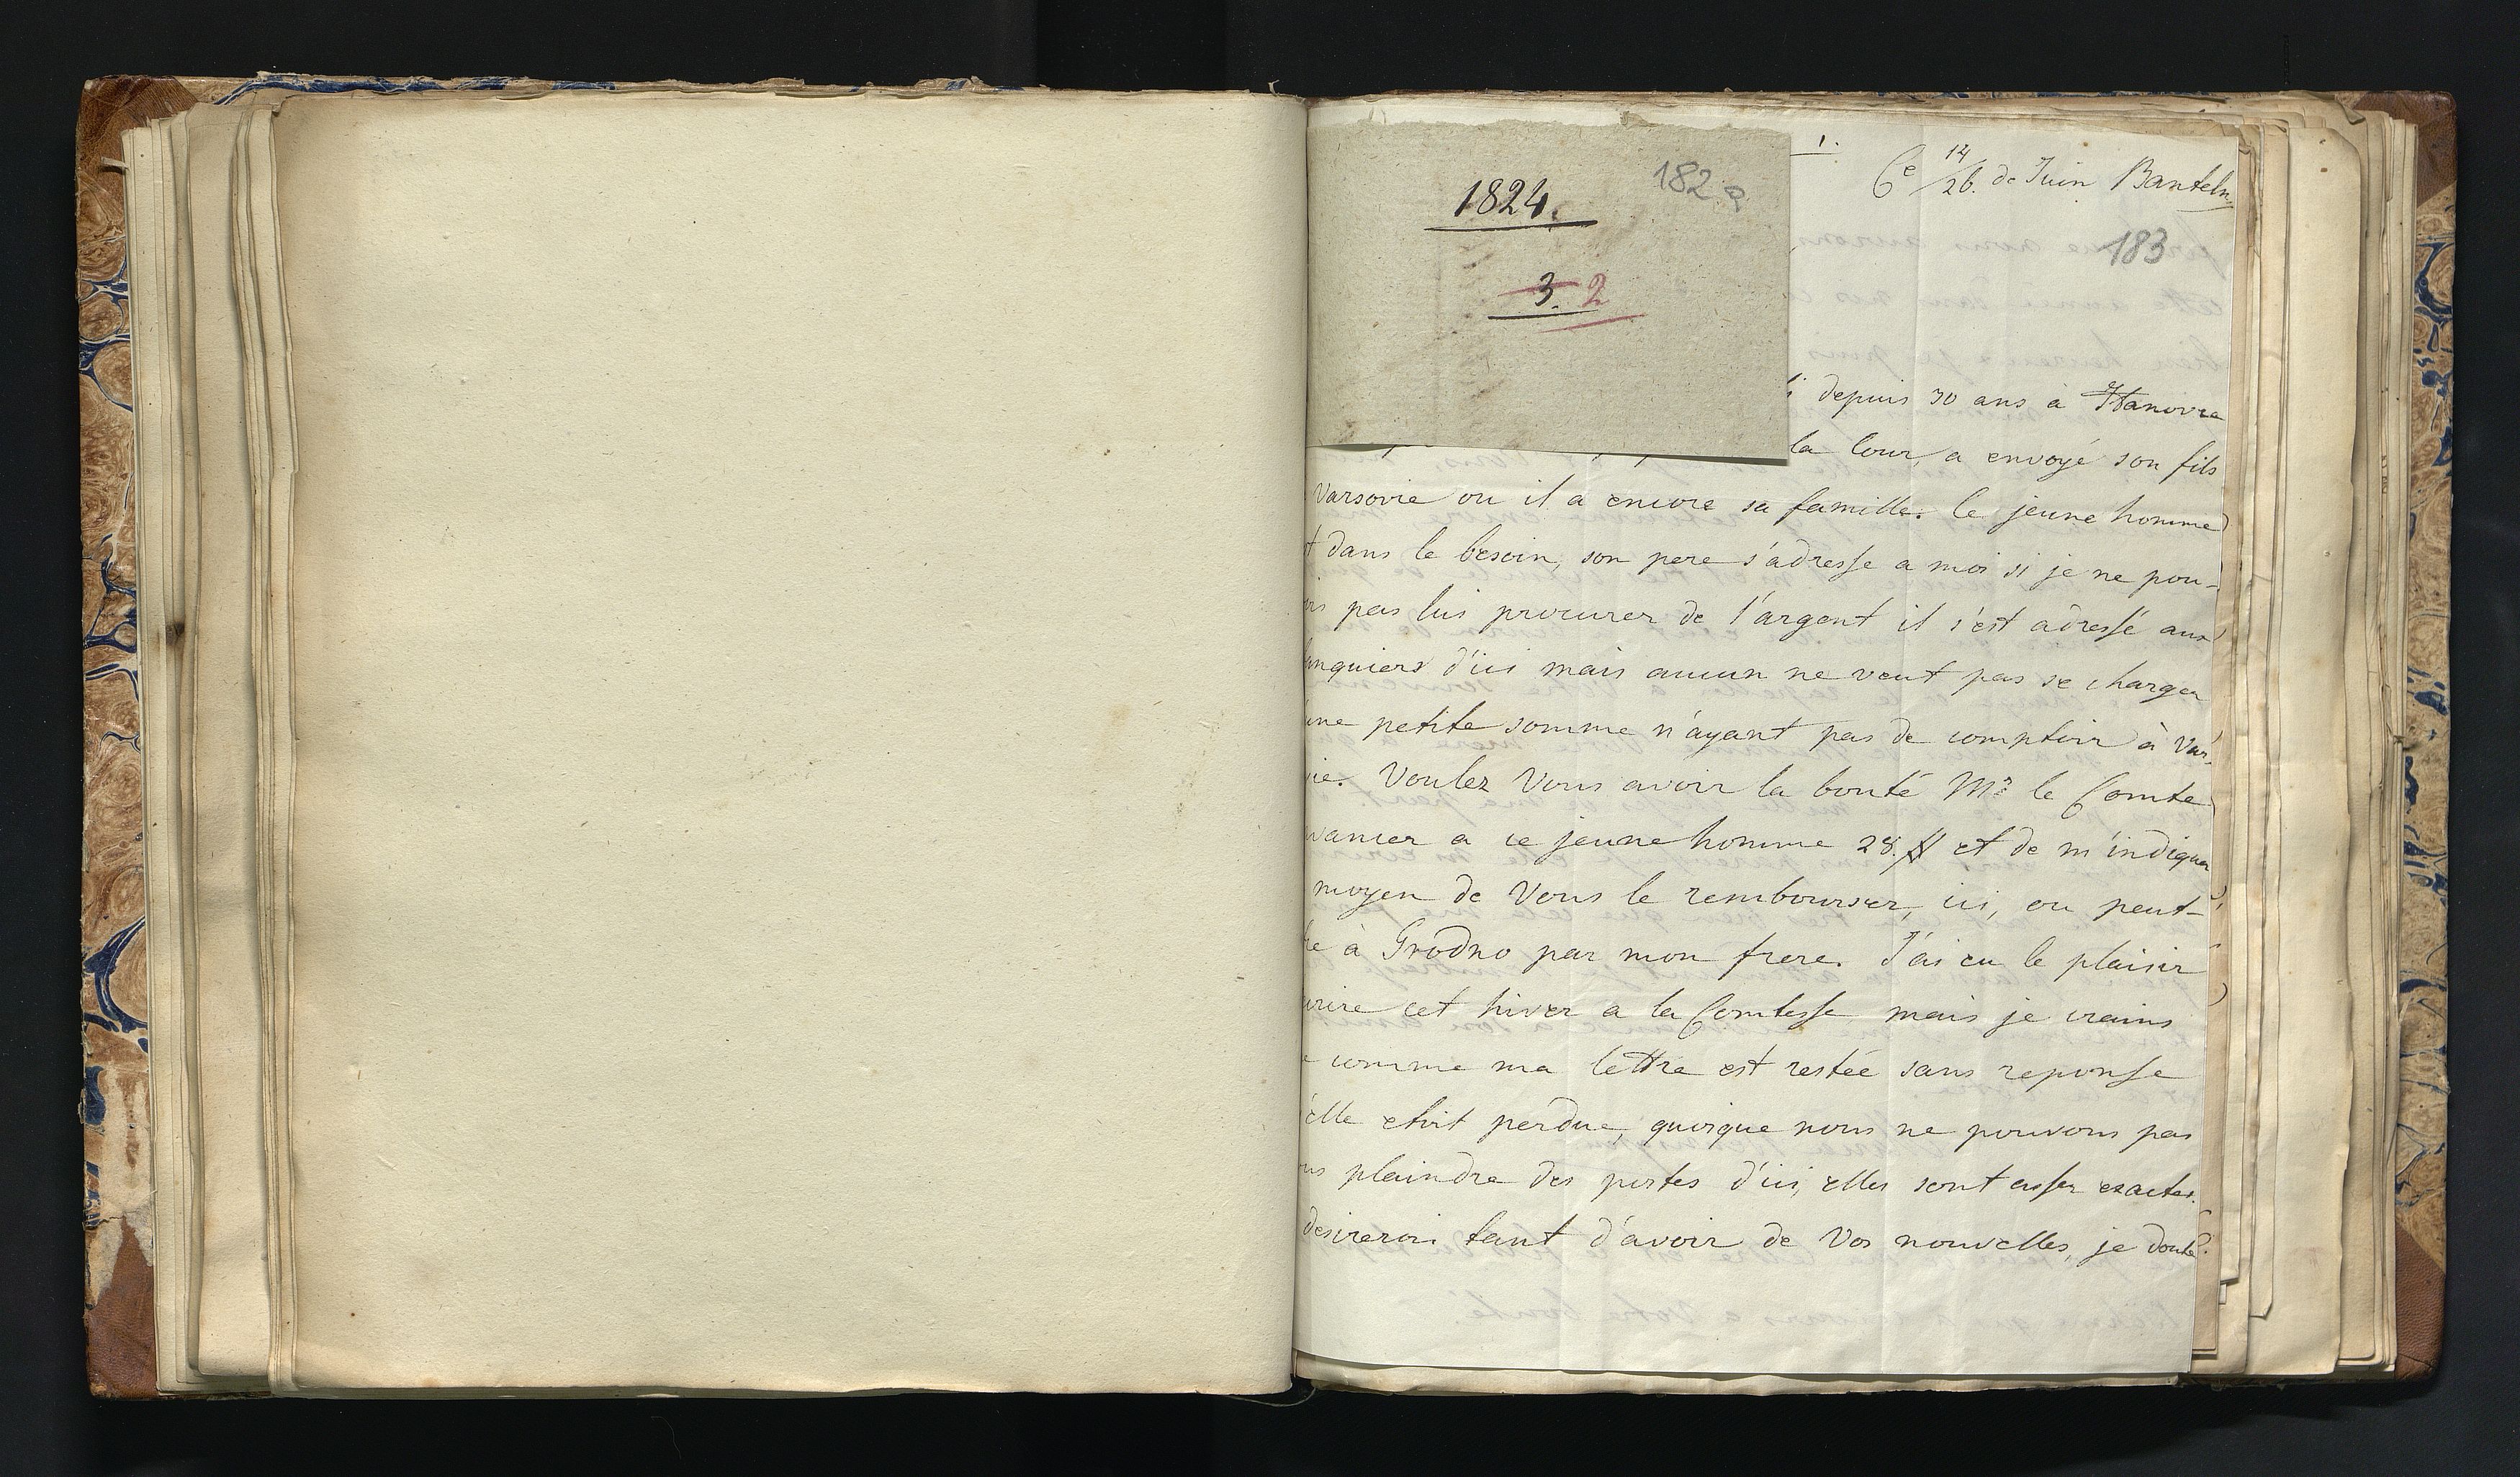 1824.
182a
3. 2
1.
Ce 14/26. de Juin Banteln
183
depuis 30 ans à Hanovre
la Cour, a envoyé son fils
Varsovie ou il a encore sa famille. Ce jeune homme
dans le besoin, son pere s'adresse a moi si je ne pou-
pas lui procurer de l'argent il s'est adressé aux
anquiers d'ici mais aucun ne veut pas se charger
une petite somme n'ayant pas de comptoir à Var-
ie. Voulez Vous avoir la bonté Mr le Comte
vancer a ce jeune homme 28. # et de m'indiquer
moyen de Vous le rembourser, ici, ou peut-
re à Grodno par mon frere. J'ai eu le plaisir
crire cet hiver a la Comtesse mais je crains
e comme ma lettre est restée sans reponse
'elle etoit perdue, quoique nous ne pouvons pas
us plaindre des postes d'ici, elles sont assez exactes.
desirerois tant d'avoir de Vos nouvelles, je doute